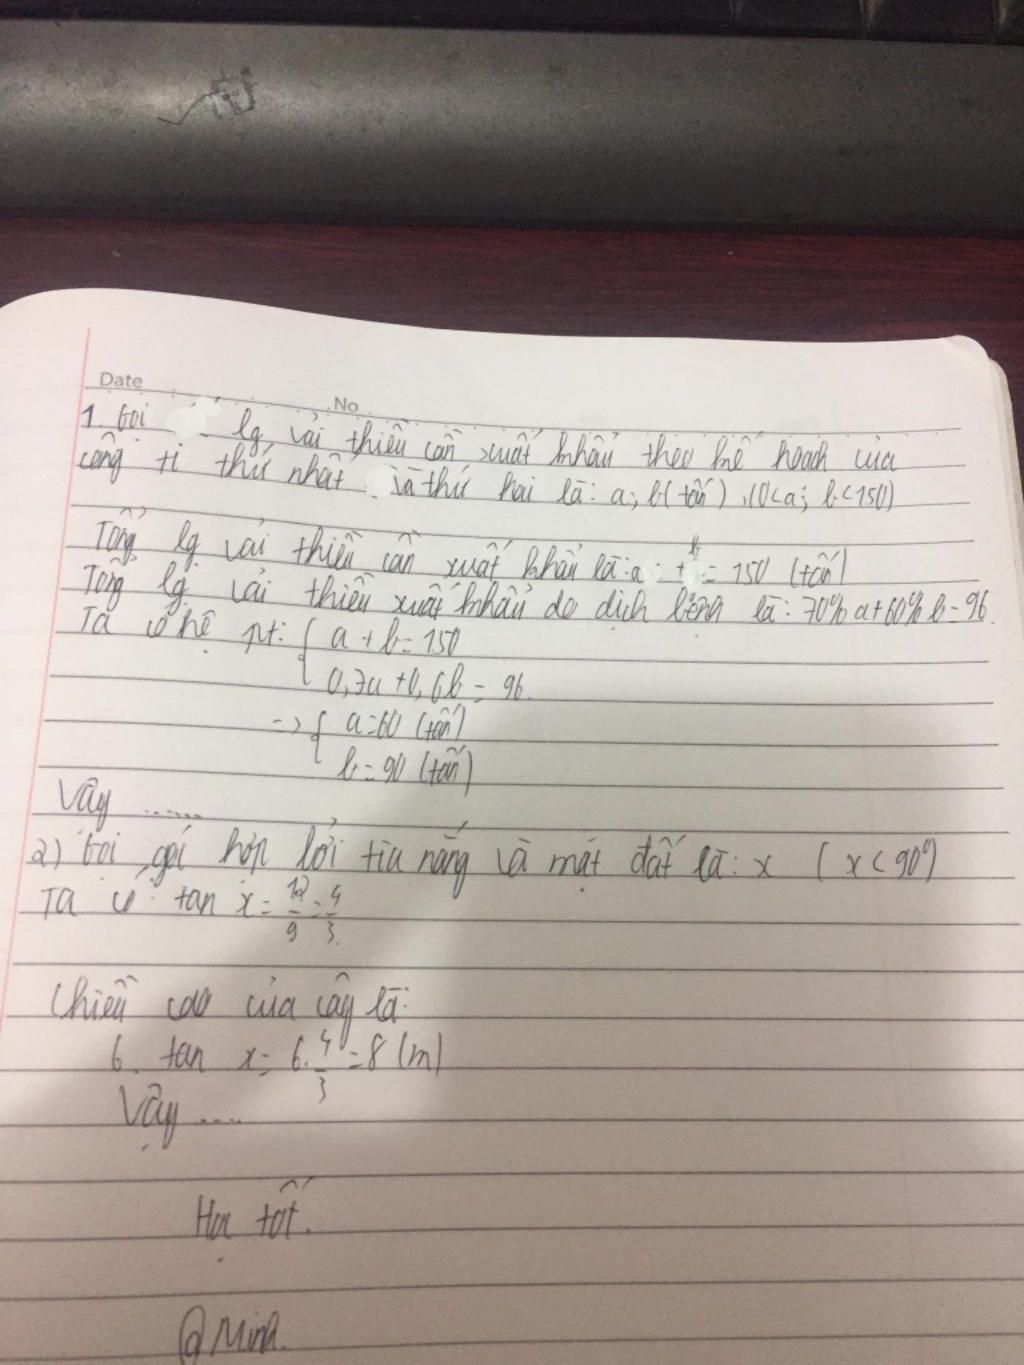 Date
No
1. Gọi lg vải thiều cần xuất khẩu theo kế hoạch của
công ti thứ nhất và thứ hai là: a; b (tấn), (0<a; b<150)
Tổng lg vải thiều cần xuất khẩu là: a + b = 150 (tấn)
Tổng lg vải thiều xuất khẩu do dịch bệnh là: 70% a + 60% b = 96
Ta có hệ pt: { a + b = 150
0,7a + 0,6b = 96
=> { a = 60 (tấn)
b = 90 (tấn)
Vậy ......
2) Gọi góc hợp bởi tia nắng và mặt đất là: x (x < 90°)
Ta có: tan x = 12/9 = 4/3.
Chiều cao của cây là:
6. tan x = 6. 4/3 = 8 (m)
Vậy ....
Học tốt.
@Minh.